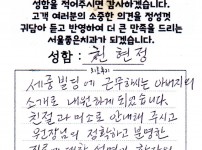 성함을 적어주시면 감사하겠습니다.
고객 여러분의 소중한 의견을 정성껏
귀담아 듣고 반영하여 더 큰 만족을 드리는
서울좋은치과가 되겠습니다.
성함 : 천현정
치료후기
세종빌딩에 근무하시는 아버지의
소개로 내원하게 되었습니다.
친절과 미소로 안내해 주시고
원장님의 정확하고 분명한